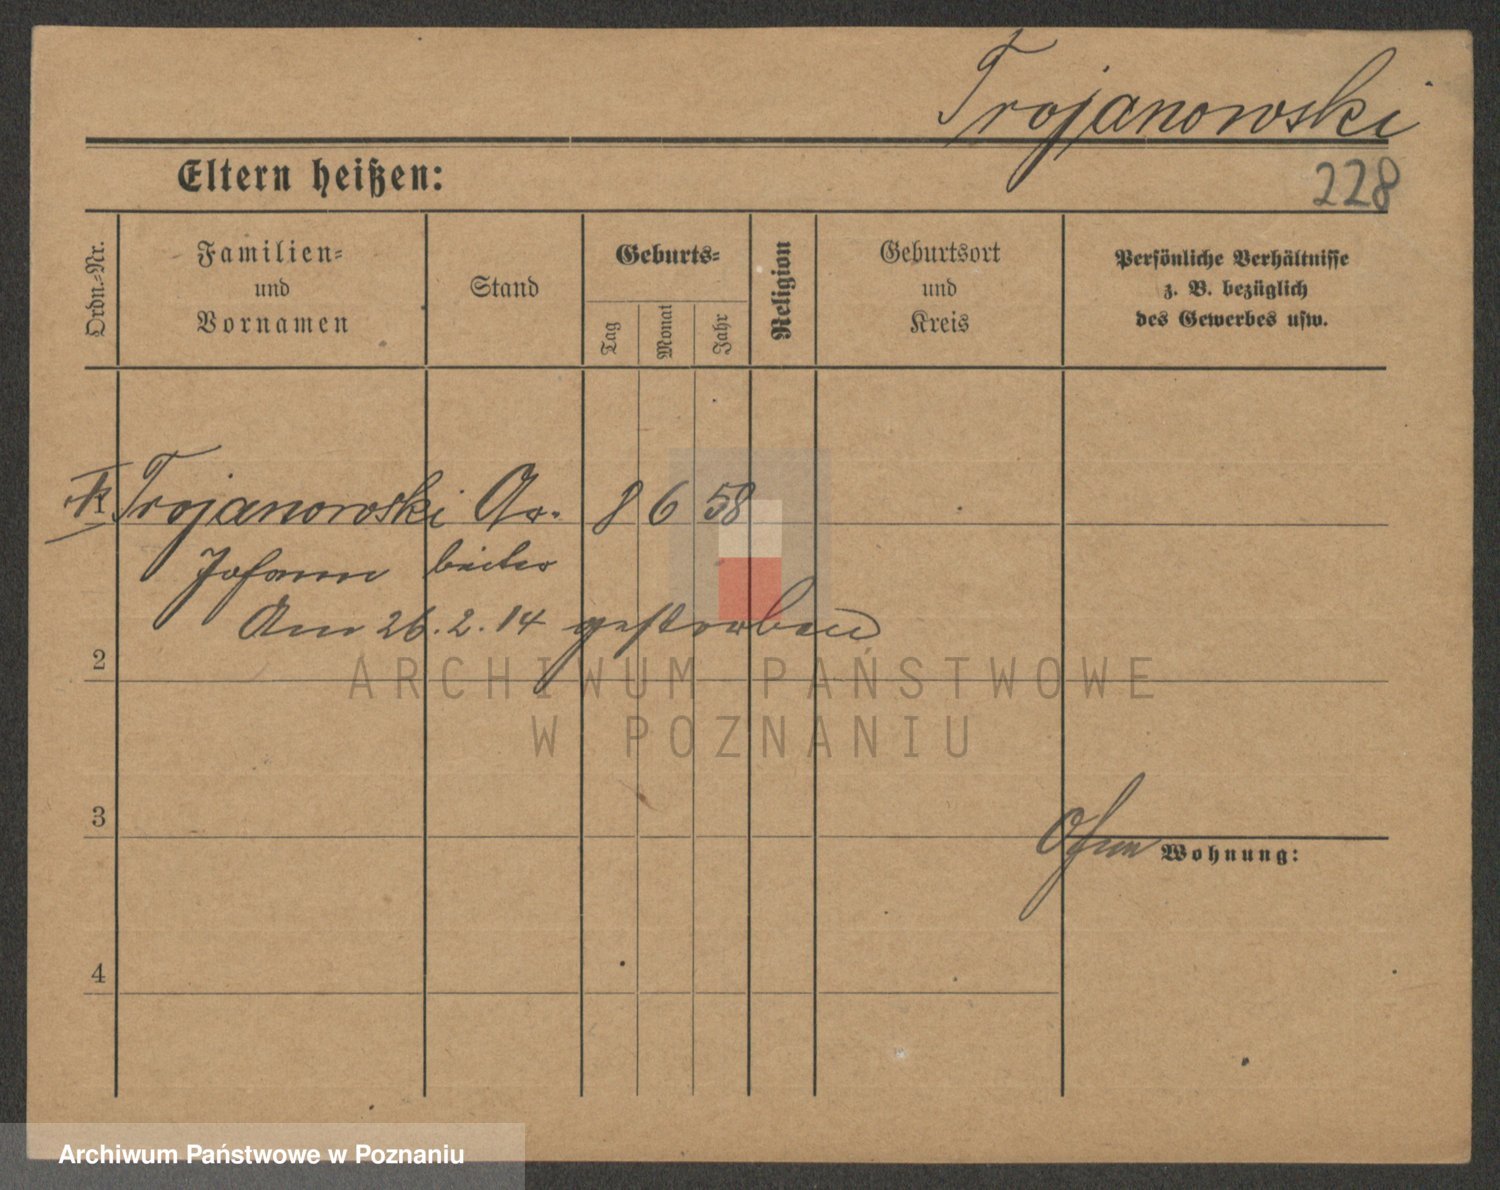 Trojanowski
228
Eltern heißen:
Ordn.-Nr.
Familien- und Vornamen
Stand
Geburts-
Tag
Monat
Jahr
Religion
Geburtsort und Kreis
Persönliche Verhältnisse z. B. bezüglich des Gewerbes usw.
Trojanowski Ar- 8 6 58
Johann beiter
Am 26.2.14 gestorben
2
ARCHIWUM PAŃSTWOWE
W POZNANIU
3
Ohne Wohnung:
4
Archiwum Państwowe w Poznaniu